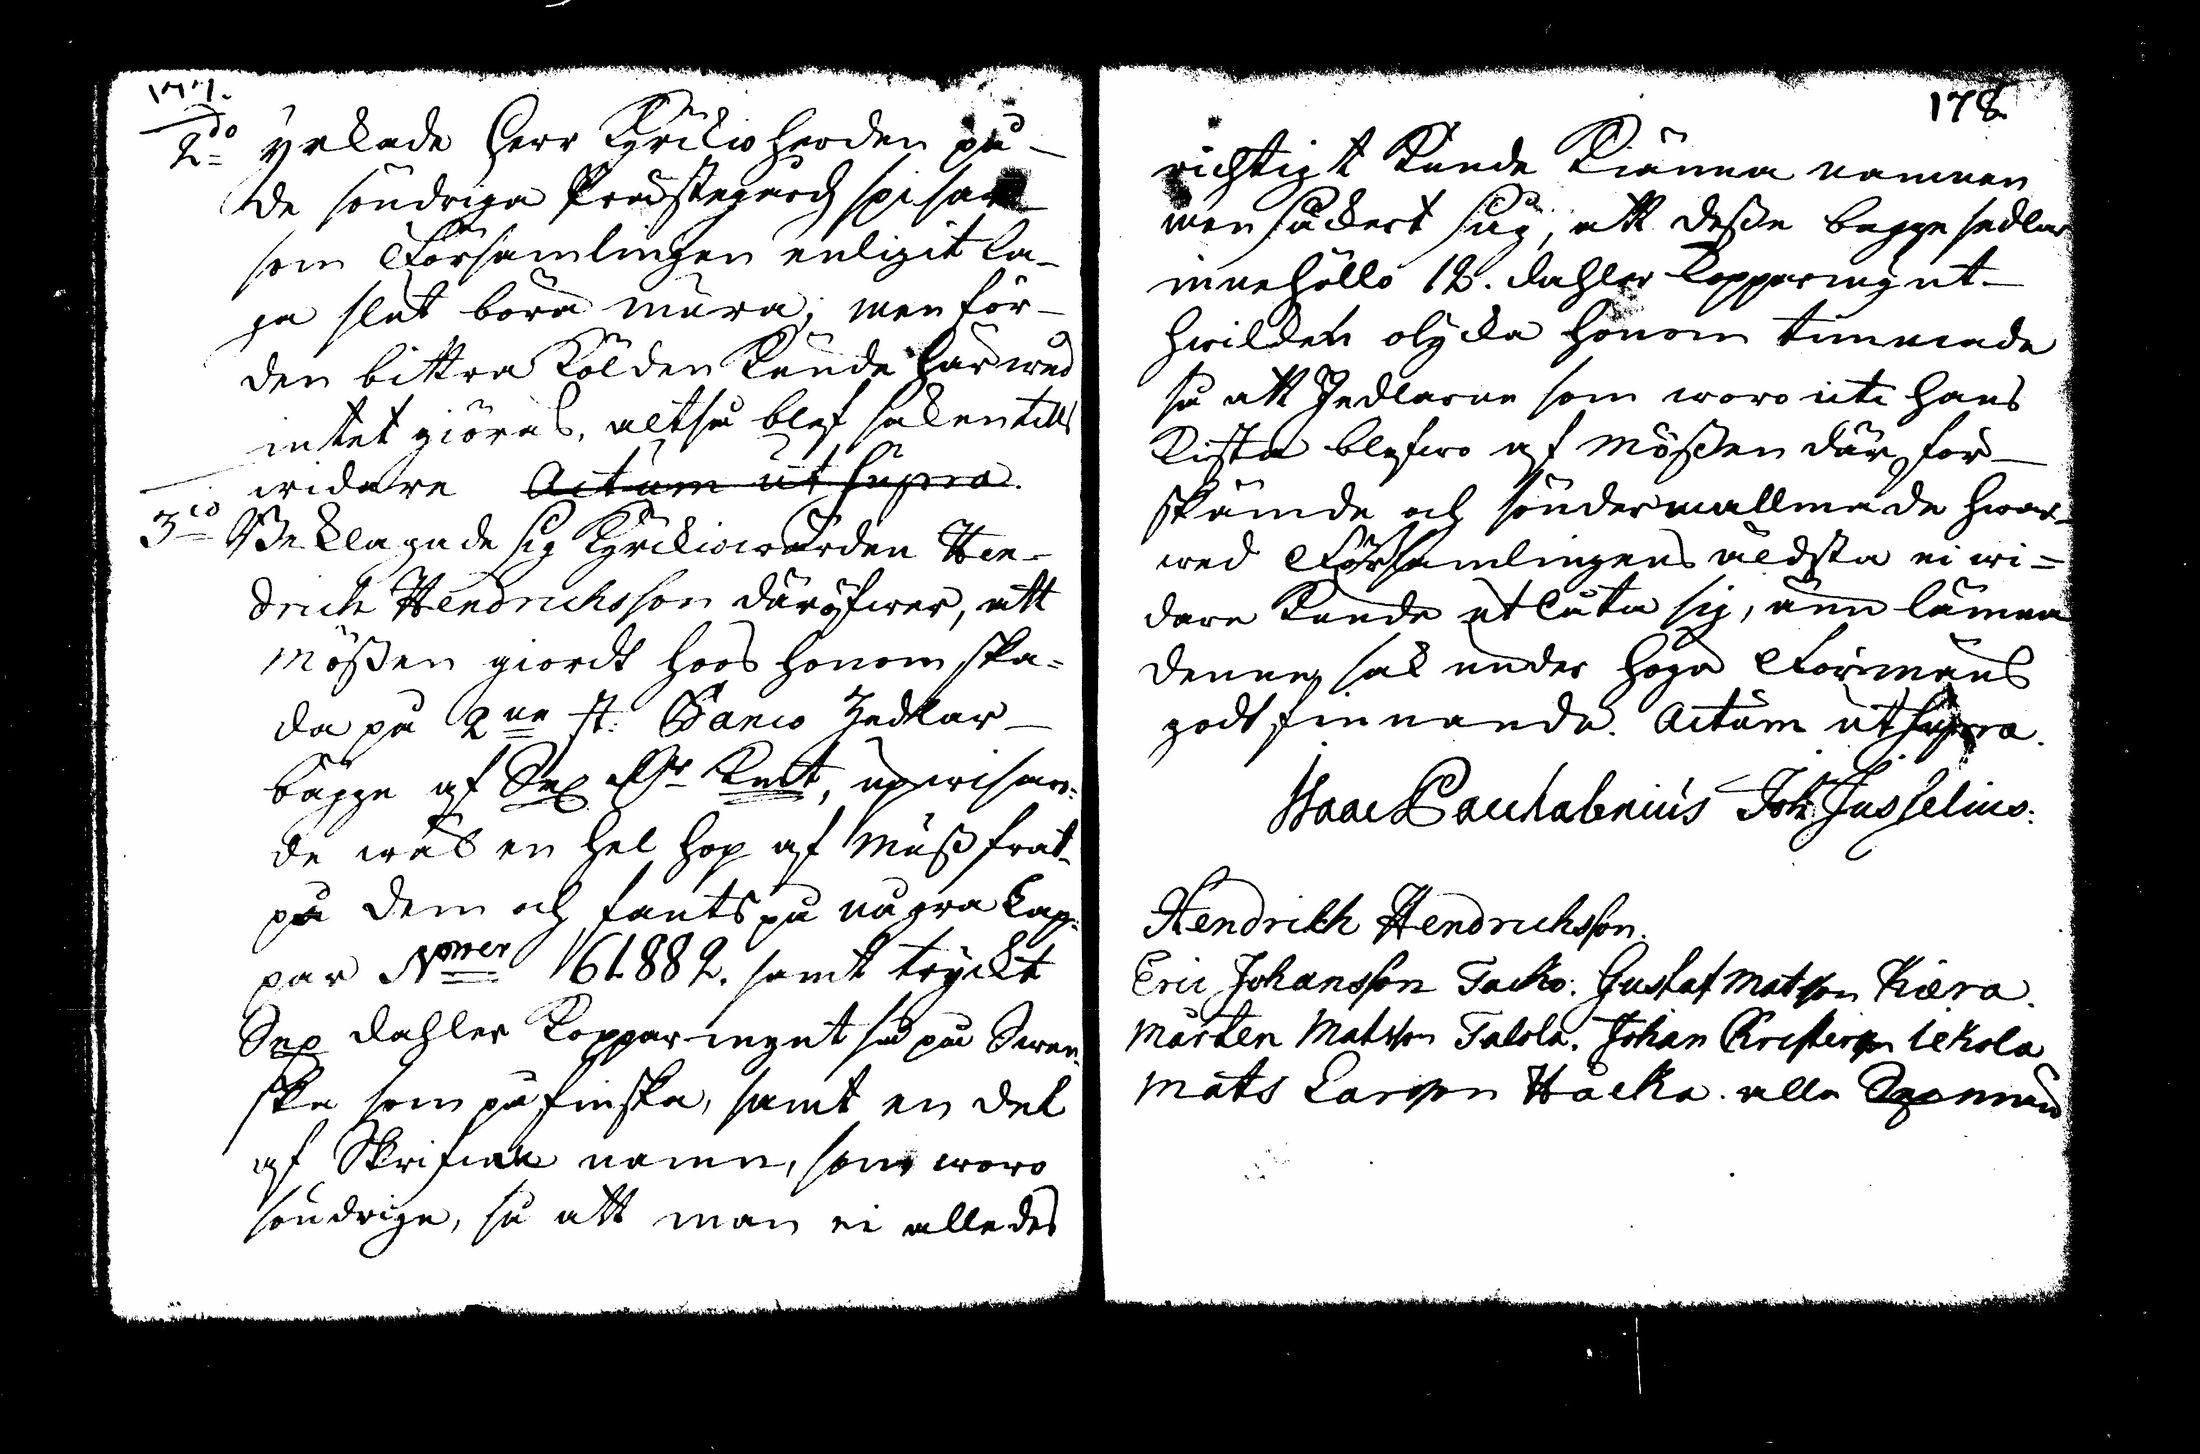 177.
2do yrkade Herr Kyrkio Herden på
de söndriga Prästegårdz spisar
som Församlingen enligit La-
ga slut böra mura; men för
den bittra Kölden kunde härwed
intet giöras, altså blef saken till
widare Actum ut supra.
3io Beklagade sig Kyrkiowärden Hen-
drich Hendrichsson däröfwer, att
Mößen giordt hoos honom ska-
da på 2ne st: Banco Zedlar
bägge af Sex dlr Kmt, upwisan-
de wäl en hel hop af Muß frat
på dem och fants på några Lap-
par Nmer 161882. samt tryckt
Sex dahler Koppar mynt så på Swen-
ska som på finska, samt en del
af Skrifne namn, som woro
söndrige, så att man ei alledes
178
richtigt kunde kiänna namnen
men säkert såg, att deße bägge sedlar
innehöllo 12. dahler Kopparmynt
hwilken olycka honom timmade
så att Zedlarne som woro uti hans
Kista blefwo af Mößen där för-
skämde och söndermallmade hwar-
wed Församlingens äldsta ei wi-
dare kunde utlåta sig, änn lämna
denne sak under höga Förmäns
godtfinnande. Actum ut supra.
Isaac Pachalenius Joh: Jusselius.
Hendrich Hendrichsson.
Eric Johansson Tacko. Gustaf Matsson Kiera.
Mårten Matsson Talola. Johan Christersson Lekola
Mats Larsson Hacka. alla Sexmän